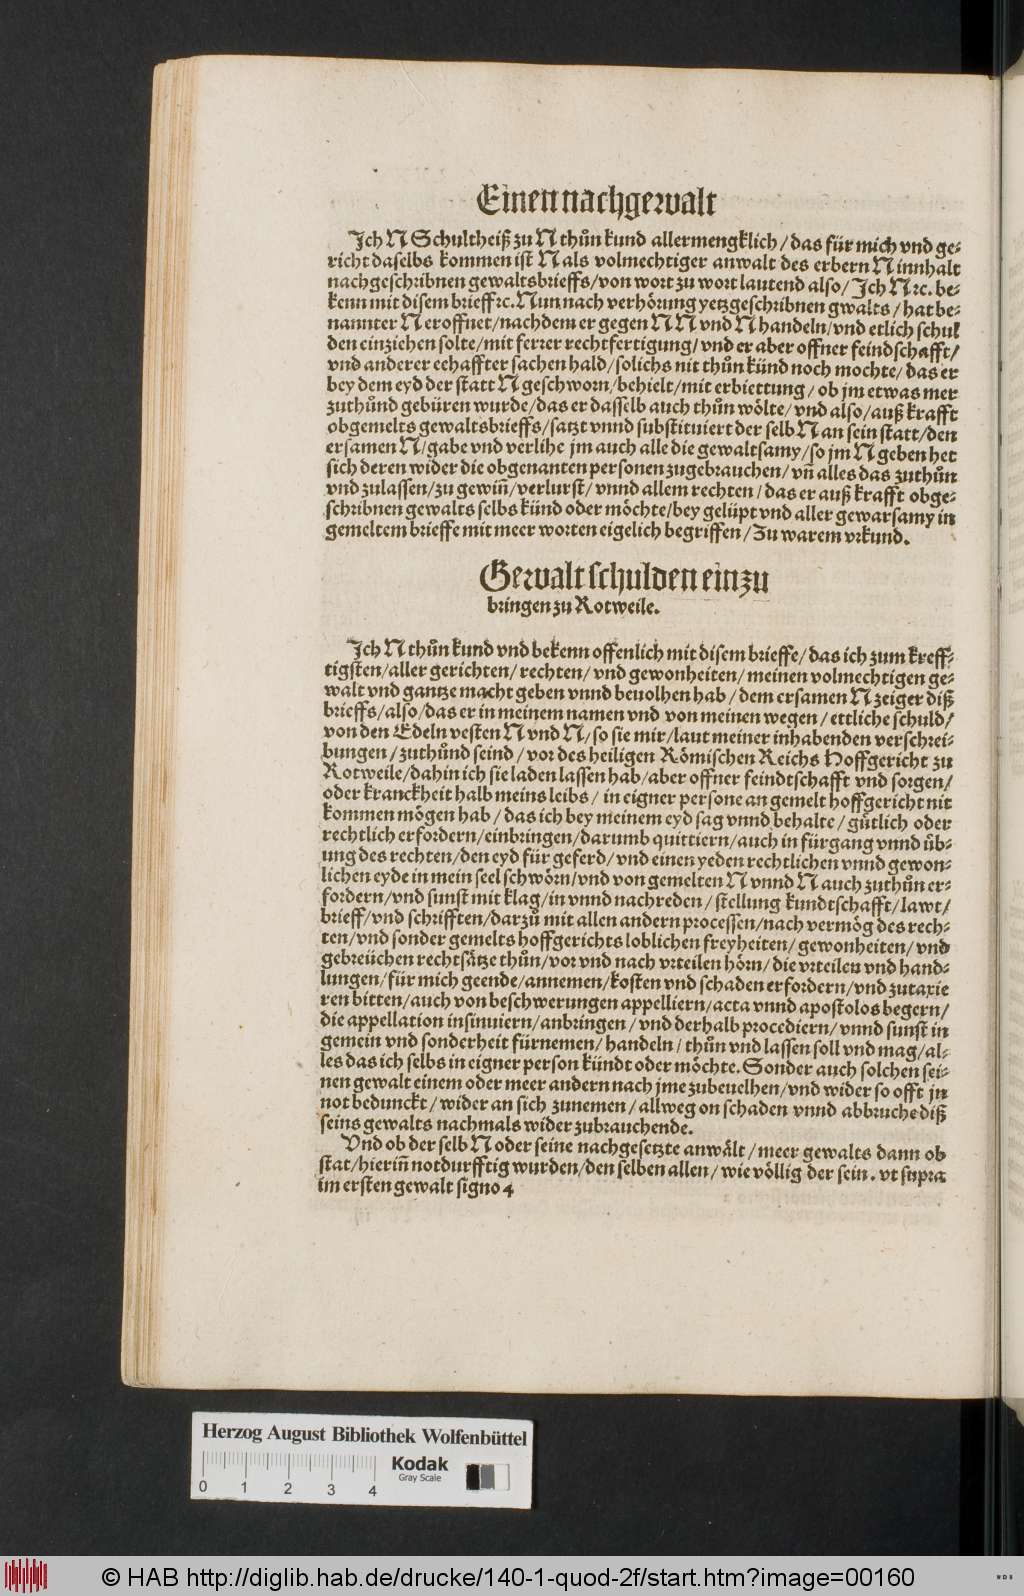 Einen nachgewalt
Jch N Schultheiß zu N thůn kund allermengklich / das für mich vnd ge⸗
richt daselbs kommen ist N als volmechtiger anwalt des erbern N innhalt
nachgeschribnen gewaltsbrieffs / von wort zu wort lautend also / Jch N ꝛc. be⸗
kenn mit disem brieff ꝛc. Nun nach verhörung yetzgeschribnen gwalts / hat be⸗
nannter N eroffnet / nachdem er gegen N N vnd N handeln / vnd etlich schul
den einziehen solte / mit ferrer rechtfertigung / vnd er aber offner feindschafft /
vnd anderer eehaffter sachen hald / solichs nit thůn künd noch mochte / das er
bey dem eyd der statt N geschworn / behielt / mit erbiettung / ob jm etwas mer
zuthůnd gebüren wurde / das er dasselb auch thůn wölte / vnd also / auß krafft
obgemelts gewaltsbrieffs / satzt vnnd substituiert der selb N an sein statt / den
ersamen N / gabe vnd verlihe jm auch alle die gewaltsamy / so jm N geben het
sich deren wider die obgenanten personen zugebrauchen / vñ alles das zuthůn
vnd zulassen / zu gewiñ / verlurst / vnnd allem rechten / das er auß krafft obge⸗
schribnen gewalts selbs künd oder möchte / bey gelüpt vnd aller gewarsamy in
gemeltem brieffe mit meer worten eigelich begriffen / Zu warem vrkund.
Gewalt schulden einzu
bringen zu Rotweile.
Jch N thůn kund vnd bekenn offenlich mit disem brieffe / das ich zum kreff⸗
tigsten / aller gerichten / rechten / vnd gewonheiten / meinen volmechtigen ge⸗
walt vnd gantze macht geben vnnd beuolhen hab / dem ersamen N zeiger diß
brieffs / also / das er in meinem namen vnd von meinen wegen / ettliche schuld /
von den Edeln vesten N vnd N / so sie mir / laut meiner inhabenden verschrei⸗
bungen / zuthůnd seind / vor des heiligen Römischen Reichs Hoffgericht zu
Rotweile / dahin ich sie laden lassen hab / aber offner feindtschafft vnd sorgen /
oder kranckheit halb meins leibs / in eigner persone an gemelt hoffgericht nit
kommen mögen hab / das ich bey meinem eyd sag vnnd behalte / gůtlich oder
rechtlich erfordern / einbringen / darumb quittiern / auch in fürgang vnnd ůb⸗
ung des rechten / den eyd für geferd / vnd einen yeden rechtlichen vnnd gewon⸗
lichen eyde in mein seel schwörn / vnd von gemelten N vnnd N auch zuthůn er⸗
fordern / vnd sunst mit klag / in vnnd nachreden / stellung kundtschafft / lawt /
brieff / vnd schrifften / darzů mit allen andern processen / nach vermög des rech⸗
ten / vnd sonder gemelts hoffgerichts loblichen freyheiten / gewonheiten / vnd
gebreüchen rechtsätze thůn / vor vnd nach vrteilen hörn / die vrteilen vnd hand⸗
lungen / für mich geende / annemen / kosten vnd schaden erfordern / vnd zutaxie
ren bitten / auch von beschwerungen appelliern / acta vnnd apostolos begern /
die appellation insinuiern / anbringen / vnd derhalb procediern / vnnd sunst in
gemein vnd sonderheit fürnemen / handeln / thůn vnd lassen soll vnd mag / al⸗
les das ich selbs in eigner person kündt oder möchte. Sonder auch solchen sei⸗
nen gewalt einem oder meer andern nach jme zubeuelhen / vnd wider so offt jn
not bedunckt / wider an sich zunemen / allweg on schaden vnnd abbruche diß
seins gewalts nachmals wider zubrauchende.
Vnd ob der selb N oder seine nachgesetzte anwält / meer gewalts dann ob
stat / hieriñ notdurfftig wurden / den selben allen / wie völlig der sein. vt supra
im ersten gewalt signo 4
Herzog August Bibliothek Wolfenbüttel
Kodak
Gray Scale
0 1 2 3 4
© HAB http://diglib.hab.de/drucke/140-1-quod-2f/start.htm?image=00160